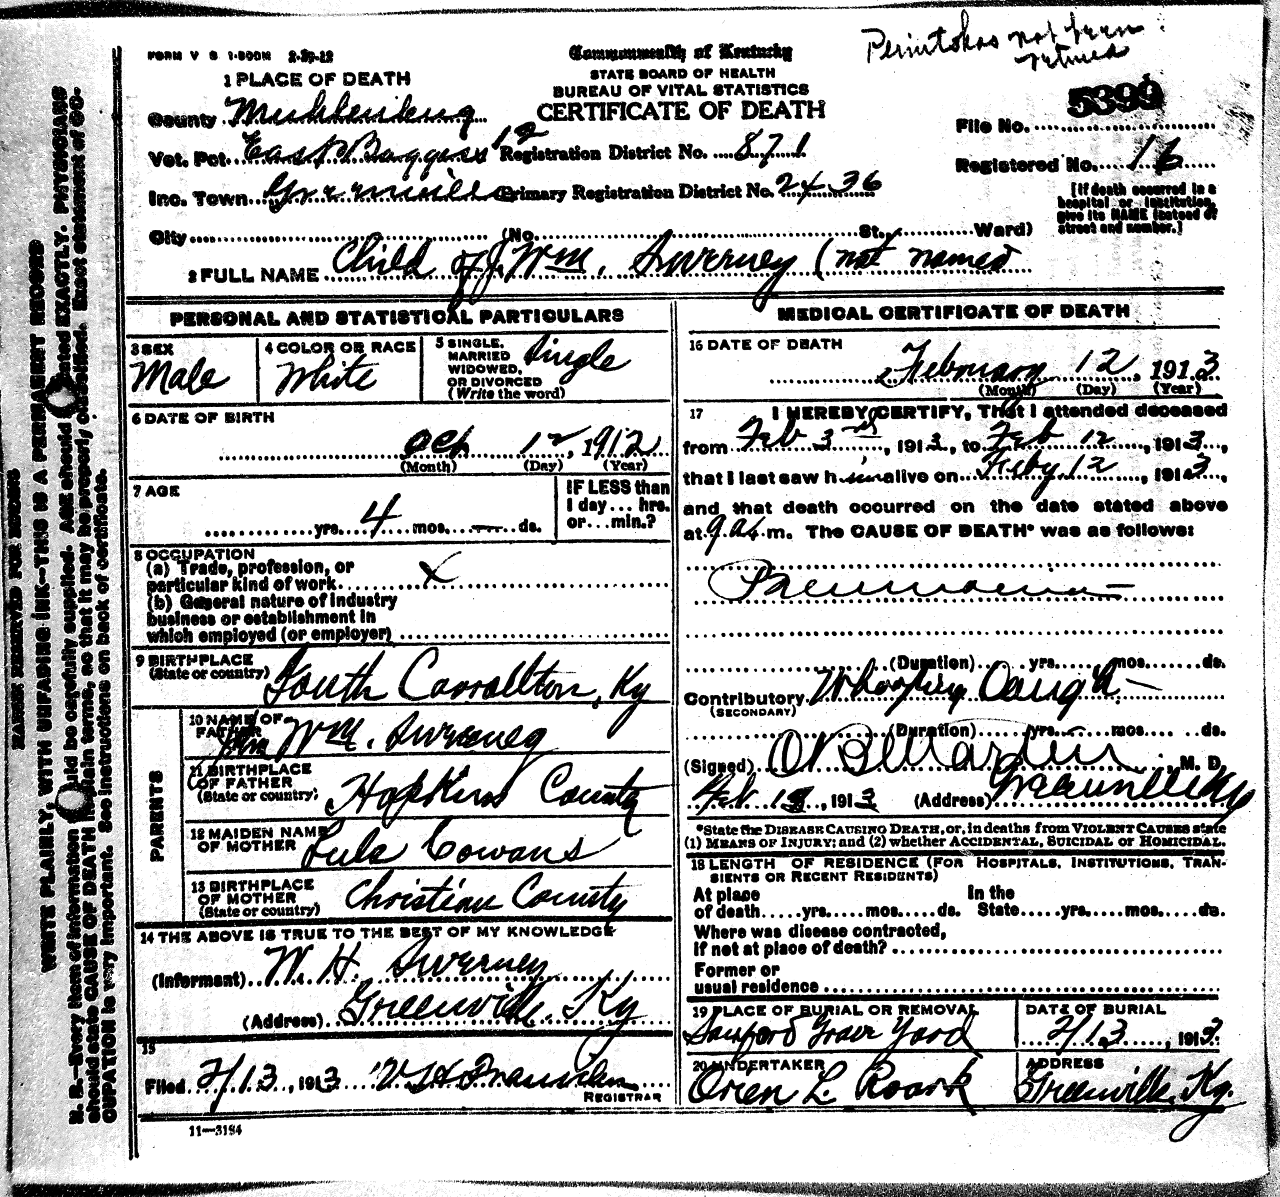 FORM V S 1-500M 2-29-12
Commonwealth of Kentucky
STATE BOARD OF HEALTH
BUREAU OF VITAL STATISTICS
CERTIFICATE OF DEATH
not been
5399
File No.
Registered No. 16
[If death occurred in a hospital or institution, give its NAME instead of street and number.]
1 PLACE OF DEATH
County Muhlenburg
Vot. Pct. East Boggess 12 Registration District No. 871
Inc. Town Greenville Primary Registration District No. 2436
City (No. St., Ward)
2 FULL NAME Child of J. Wm. Sweeney (not named
PERSONAL AND STATISTICAL PARTICULARS
3 SEX Male
4 COLOR OR RACE White
5 SINGLE, MARRIED WIDOWED, OR DIVORCED (Write the word) Single
6 DATE OF BIRTH
Oct 12, 1912
(Month) (Day) (Year)
7 AGE
yrs. 4 mos. — ds.
IF LESS than 1 day... hrs. or... min.?
8 OCCUPATION
(a) Trade, profession, or particular kind of work X
(b) General nature of industry business or establishment in which employed (or employer)
9 BIRTHPLACE (State or country) South Carrollton, Ky
PARENTS
10 NAME OF FATHER Wm. Sweeney
11 BIRTHPLACE OF FATHER (State or country) Hopkins County
12 MAIDEN NAME OF MOTHER Lula Cowans
13 BIRTHPLACE OF MOTHER (State or country) Christian County
14 THE ABOVE IS TRUE TO THE BEST OF MY KNOWLEDGE
(Informant) W. H. Sweeney
(Address) Greenville Ky
15
Filed 2/13, 1913
REGISTRAR
11—3184
MEDICAL CERTIFICATE OF DEATH
16 DATE OF DEATH
February 12, 1913
(Month) (Day) (Year)
17 I HEREBY CERTIFY, That I attended deceased
from Feb 3rd, 1913, to Feb 12, 1913,
that I last saw him alive on Feby 12, 1913,
and that death occurred on the date stated above
at 9 a. m. The CAUSE OF DEATH* was as follows:
Pneumonia
(Duration) yrs. mos. ds.
Contributory Whooping Cough
(SECONDARY)
(Duration) yrs. mos. ds.
(Signed) M. D.
Feb 13, 1913 (Address) Greenville Ky
*State the DISEASE CAUSING DEATH, or, in deaths from VIOLENT CAUSES state
(1) MEANS OF INJURY; and (2) whether ACCIDENTAL, SUICIDAL or HOMICIDAL.
18 LENGTH OF RESIDENCE (FOR HOSPITALS, INSTITUTIONS, TRANSIENTS OR RECENT RESIDENTS)
At place of death yrs. mos. ds. In the State yrs. mos. ds.
Where was disease contracted, if not at place of death?
Former or usual residence
19 PLACE OF BURIAL OR REMOVAL Grave Yard
DATE OF BURIAL 2/13, 1913
20 UNDERTAKER Oren L. Roark
ADDRESS Greenville, Ky.
MARGIN RESERVED FOR BINDING
WRITE PLAINLY, WITH UNFADING INK—THIS IS A PERMANENT RECORD
N. B.—Every item of information should be carefully supplied. AGE should be stated EXACTLY. PHYSICIANS
should state CAUSE OF DEATH in plain terms, so that it may be properly classified. Exact statement of OC-
CUPATION is very important. See instructions on back of certificate.